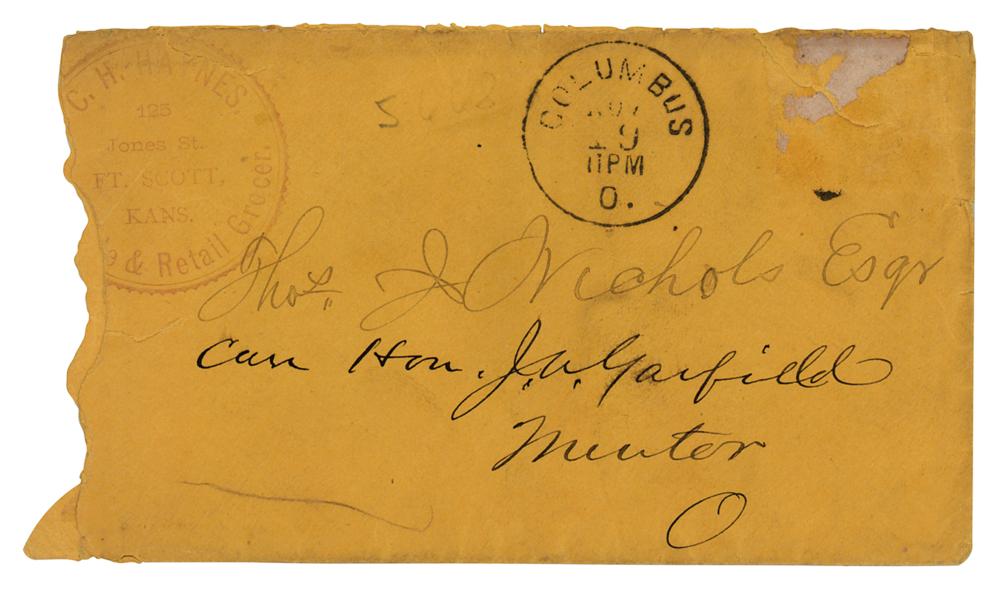 C. H. HAYNES
125
Jones St.
FT. SCOTT,
KANS.
& Retail Grocer.
COLUMBUS
NOV
19
11PM
O.
Thos. J Nichols Esqr
Care Hon. J. A. Garfield
Mentor
O